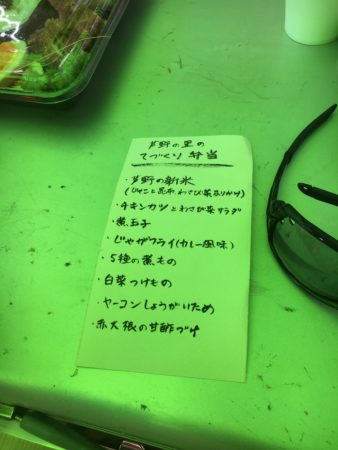 芦野の里の
てづくり弁当
・芦野の新米
(じゃこと昆布わさび菜ふりかけ)
・チキンカツとわさび菜サラダ
・煮玉子
・じゃがフライ(カレー風味)
・5種の煮もの
・白菜つけもの
・ヤーコンしょうがいため
・赤大根の甘酢づけ